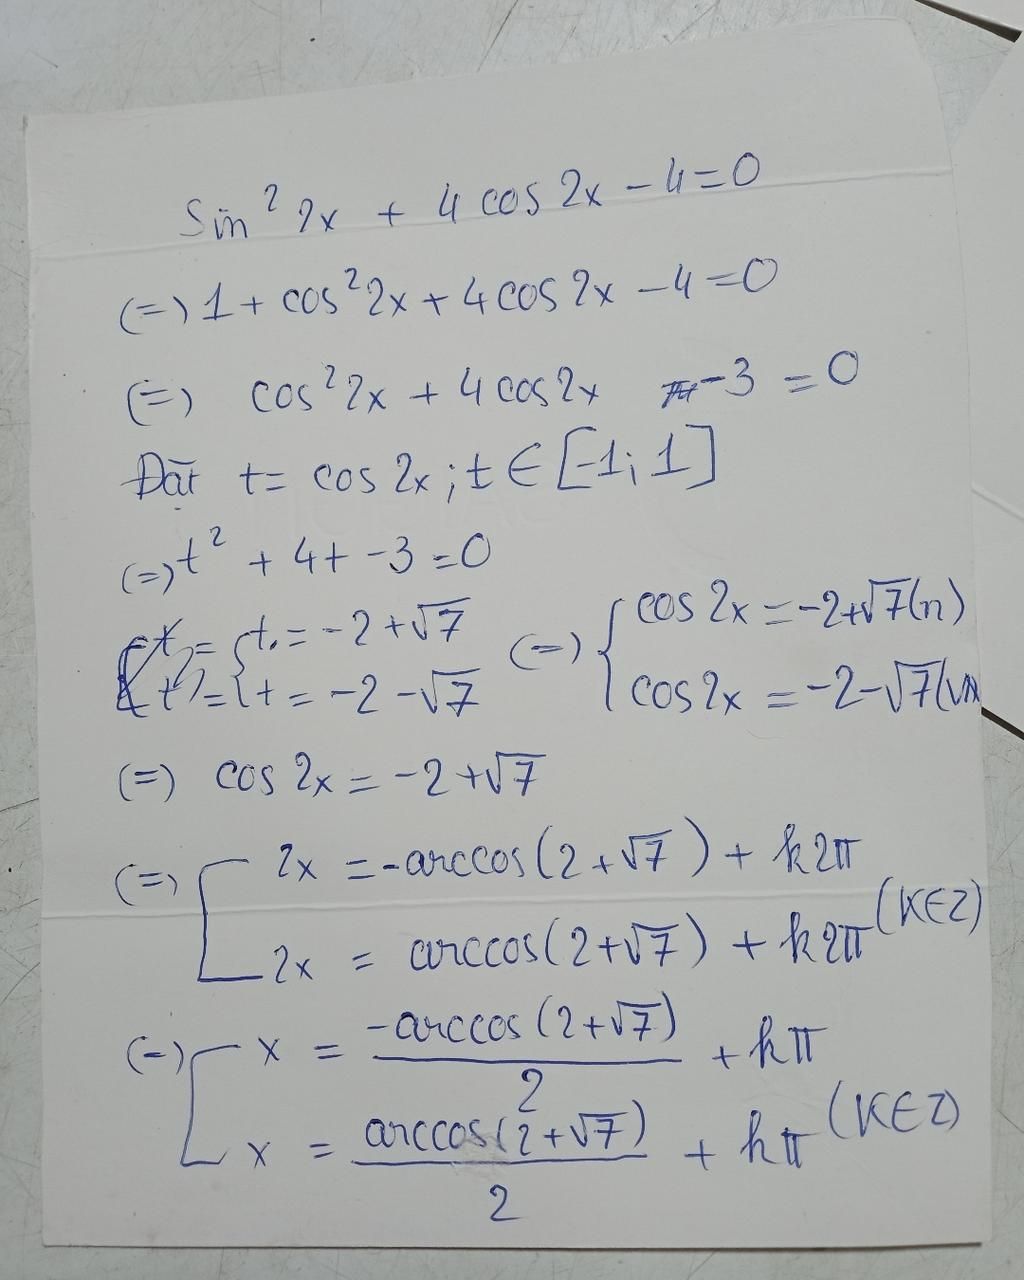 Sin² 2x + 4 cos 2x - 4 = 0
(=) 1 + cos² 2x + 4 cos 2x - 4 = 0
(=) cos² 2x + 4 cos 2x - 3 = 0
Đặt t = cos 2x ; t ∈ [-1; 1]
(=) t² + 4t - 3 = 0
{ t = -2 + √7 (=) { cos 2x = -2 + √7 (n)
{ t = -2 - √7 { cos 2x = -2 - √7 (vn
(=) cos 2x = -2 + √7
(=) [ 2x = -arccos(2 + √7) + k2π
[ 2x = arccos(2 + √7) + k2π (K∈Z)
(=) [ x = -arccos(2 + √7)/2 + kπ
[ x = arccos(2 + √7)/2 + kπ (K∈Z)